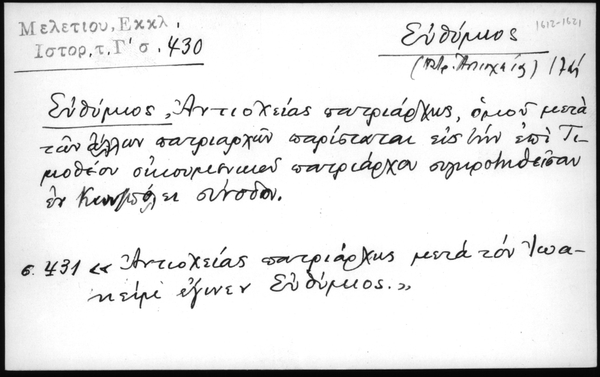 Μελετίου, Εκκλ.
Ιστορ, τ. Γ' σ. 430
1612-1621
Εὐθύμιος
(πτρ. Ἀντιοχείας)
Εὐθύμιος, Ἀντιοχείας πατριάρχης, ὁμοῦ μετὰ
τῶν ἄλλων πατριαρχῶν παρίσταται εἰς τὴν ἐπὶ Τι-
μοθέου οἰκουμενικοῦ πατριάρχου συγκροτηθεῖσαν
ἐν Κων/πόλει σύνοδον.
σ. 431 « Ἀντιοχείας πατριάρχης μετὰ τόν Ἰωα-
κείμ ἔγινεν Εὐθύμιος.»